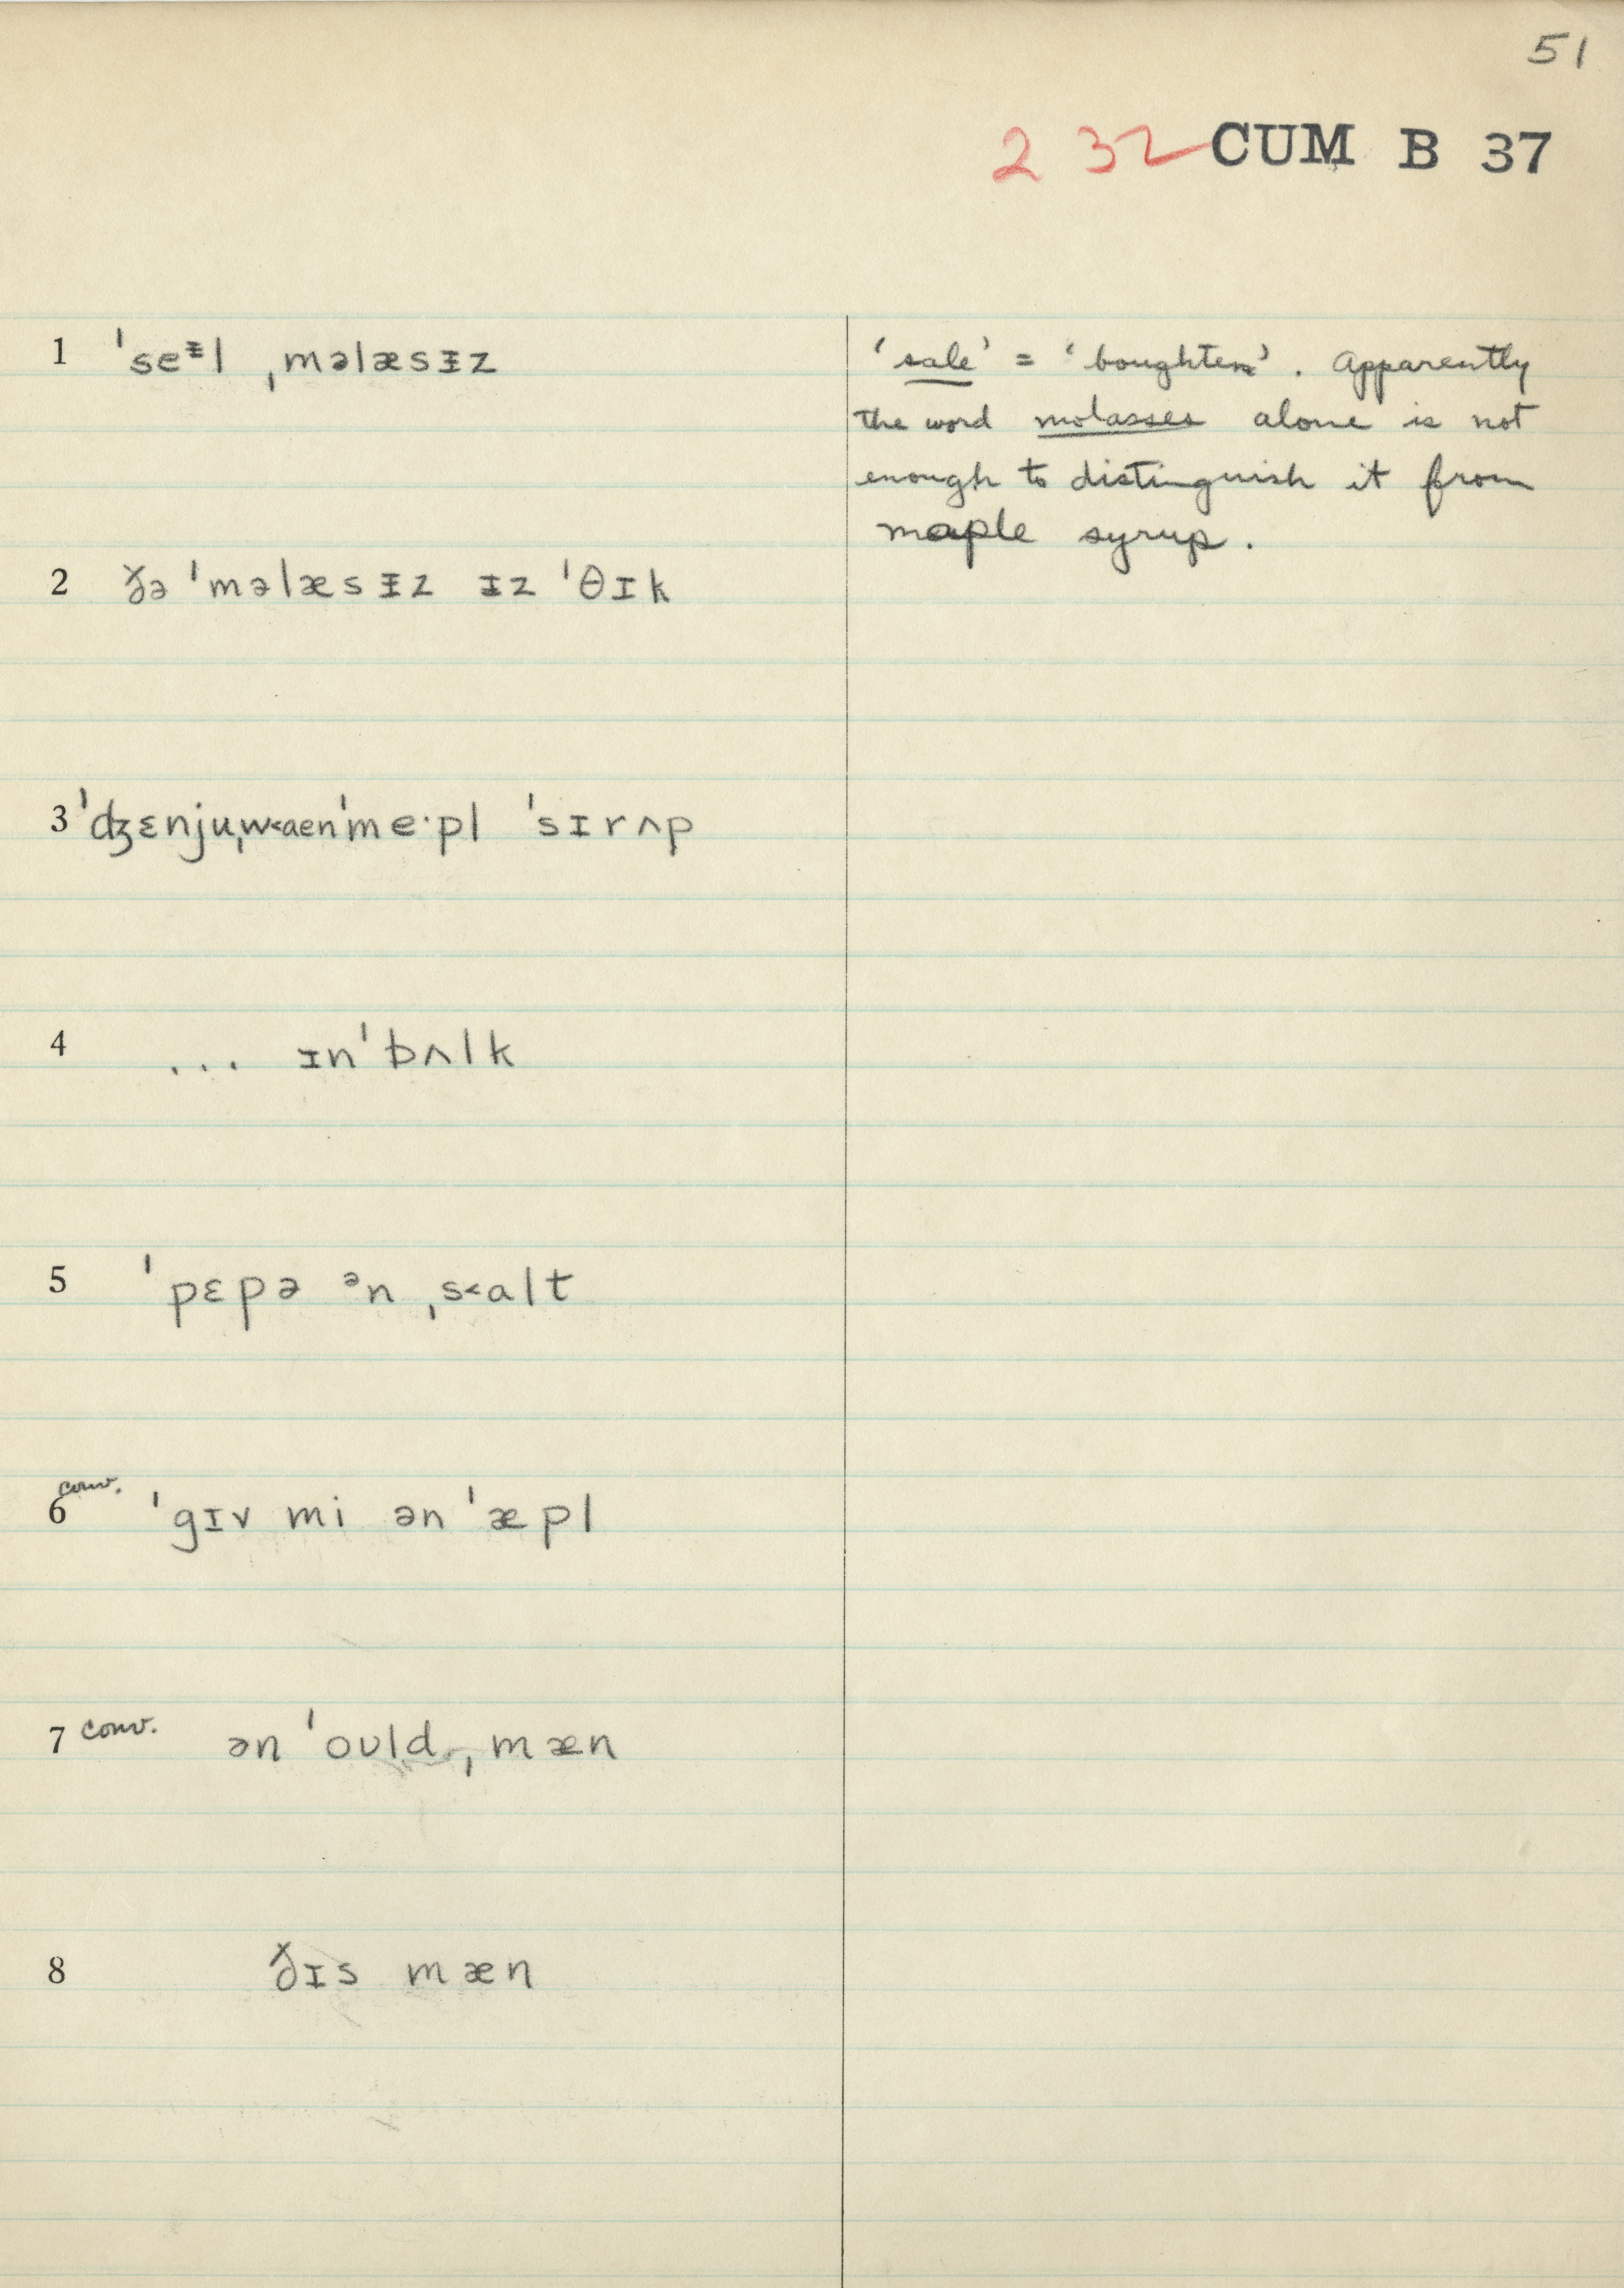 51
2 32 CUM B 37
1 ˈseᵻl ˌməlæsᵻz
‘sale’ = ‘boughten’. Apparently
the word molasses alone is not
enough to distinguish it from
maple syrup.
2 ðə ˈməlæsᵻz ɪz ˈθɪk
3 ˈʤɛnjuˌw<aenˈme·pl ˈsɪrʌp
4 ... ɪnˈbʌlk
5 ˈpɛpə ᵊn ˌs<alt
6 conv. ˈgɪv mi ən ˈæpl
7 conv. ən ˈoʊld ˌmæn
8 ðɪs mæn